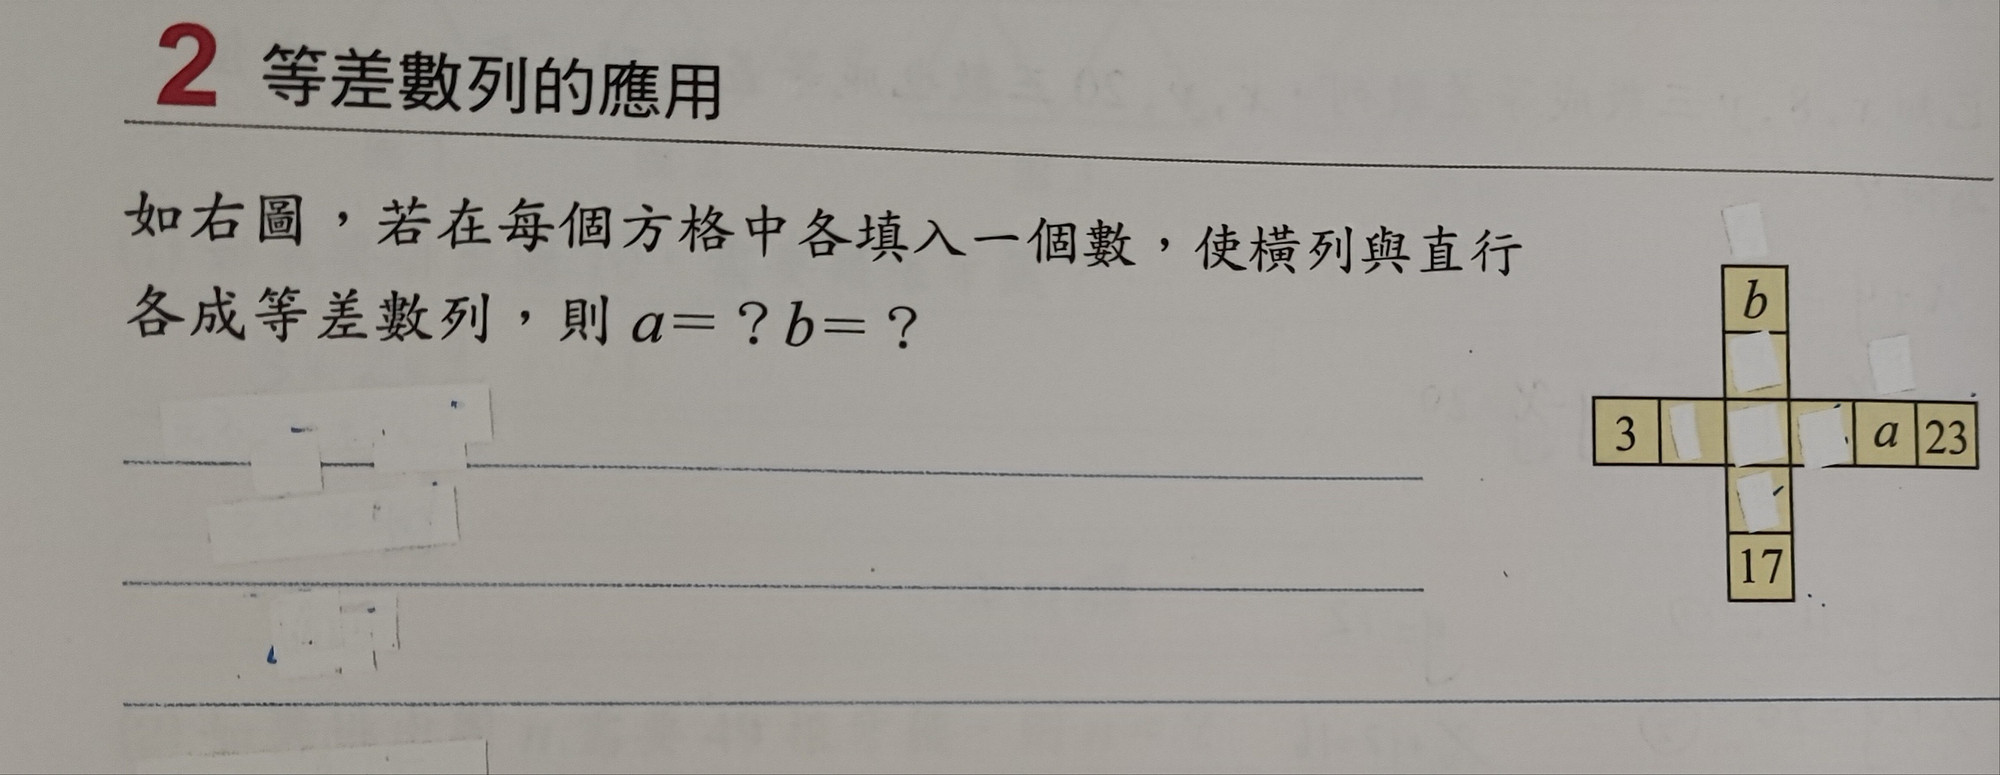 2 等差數列的應用
如右圖，若在每個方格中各填入一個數，使橫列與直行
各成等差數列，則 a=？b=？
b
3 a 23
17